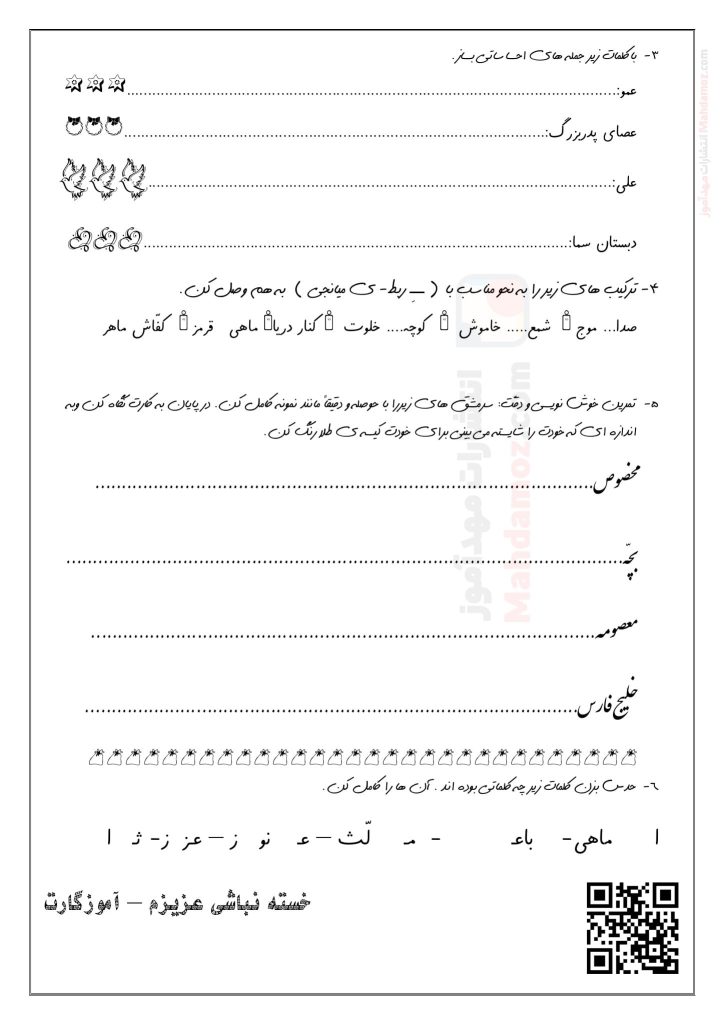 ۳- با کلمات زیر جمله های احساساتی بساز.
عمو:........................................
عصای پدربزرگ:........................................
علی:........................................
دبستان سما:........................................
۴- ترکیب های زیر را به نحو مناسب با ( ـِ ربط- ی میانجی ) به هم وصل کن.
صدا... موج شمع..... خاموش کوچه.... خلوت کنار دریا ماهی قرمز کفّاش ماهر
۵- تمرین خوش نویسی و دقّت: سرمشق های زیررا با حوصله و دقیقاً مانند نمونه کامل کن. در پایان به کارت نگاه کن وبه
اندازه ای که خودت را شایسته می بینی برای خودت کیسه ی طلا رنگ کن.
مخصوص........................................
بچّه........................................
معصومه........................................
خلیج فارس........................................
۶- حدس بزن کلمات زیر چه کلماتی بوده اند . آن ها را کامل کن.
ا ماهی- باعـ - مـ لّث – عـ نو ز – عز ز- ثـ ا
خسته نباشی عزیزم – آموزگارت
انتشارات مهدآموز
Mahdamoz.com
انتشارات مهدآموز Mahdamoz.com